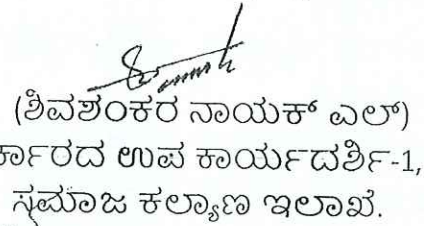 (ಶಿವಶಂಕರ ನಾಯಕ್ ಎಲ್)
ರ್ಕಾರದ ಉಪ ಕಾರ್ಯದರ್ಶಿ-1,
ಸಮಾಜ ಕಲ್ಯಾಣ ಇಲಾಖೆ.